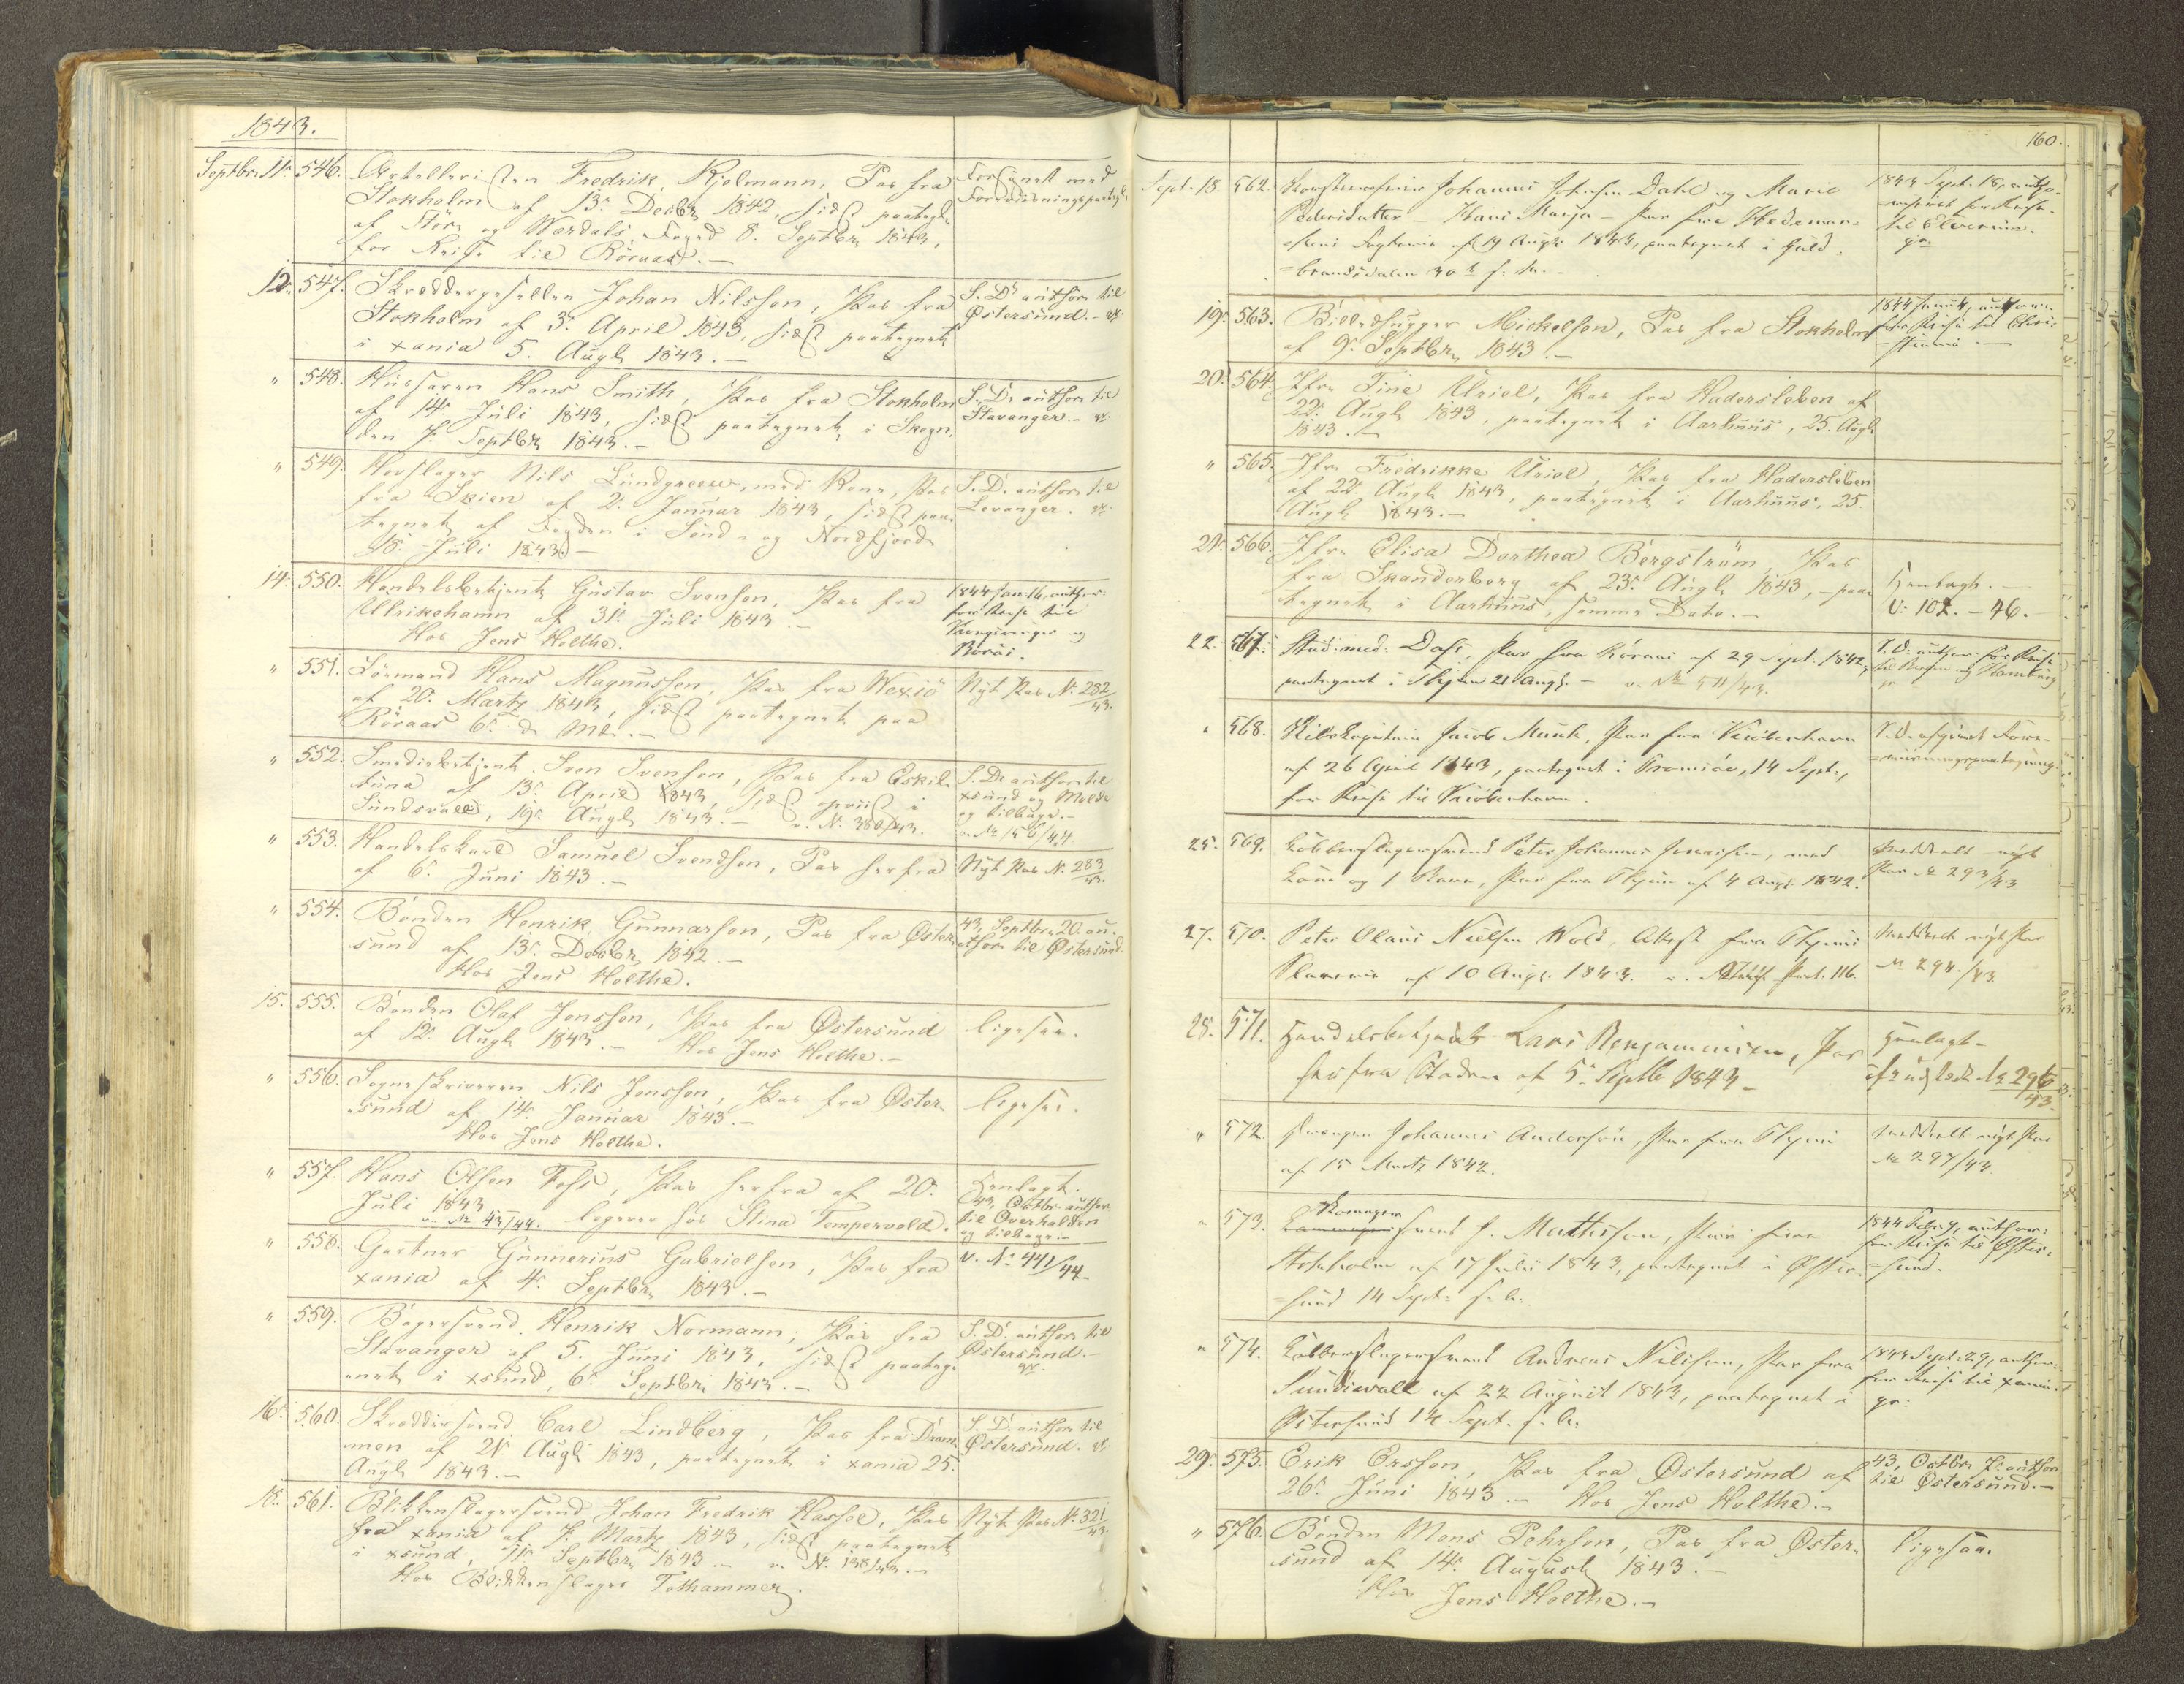 1843.
Septbr. 11. 546. Artelleristen Fredrik Kjelmann, Pas fra
Stokholm af 13. Decbr. 1842, sidst paategn.
af Stör. og Værdals Fogd 8. Septbr. 1843,
for Reise til Röraas.-
Forsynet med
12. 547. Skreddergesellen Johan Nilsson, Pas fra
Stokholm af 3. April 1843, sidst paategnet
i xania 5. Augh. 1843.-
S. D. author. til
Östersund.-
" 548. Hussaren Hans Smith, Pas fra Stokholm
af 14. Juli 1843, sidst paategnet i Skogn.
den 7. Septbr. 1843.-
S. D. author. til
Stavanger.-
" 549. Hovslager Nils Lundgreen, med Kone, Pas
fra Skien af 2. Januar 1843, sidst paa-
tegnet af Fogden i Sönd- og Nordfjord
18. Juli 1843.-
S. D. author. til
Levanger.
14. 550. Handelsbetjent Gustav Svensen, Pas fra
Ulrikehamn af 31. Juli 1843.-
Hos Jens Holthe.
1844 Jan. 16, author.
for Reise til
Kongsvinger og
" 551. Hans Magnussen, Pas fra Wexiö
af 20. Martz 1843, sidst paategnet paa
Röraas 6. d. Md.-
Nyt Pas No. 282/43.
" 552. Smedebetjent Sven Svensen, Pas fra Eskils-
tuna af 13. April 1843, sidst i
Sundsvall, 19. Augh. 1843.- v. No. 380/43.
S. D. author. til
xsund og Molde
og tilbage.-
" 553. Handelskarl Samuel Svendsen, Pas herfra
af 6. Juni 1843.-
Nyt Pas No. 283/43.
" 554. Bonden Henrik Gunnarsen, Pas fra Öster-
sund af 13. Decbr. 1842.-
Hos Jens Holthe.
43, Septbr. 20. au-
thor. til Östersund.
15. 555. Bonden Olaf Jonsson, Pas fra Östersund
af 12. Augh. 1843.- Hos Jens Holthe.-
ligesaa.
" 556. Sogneskriveren Nils Jonsson, Pas fra Öster-
sund af 14. Januar 1843.-
Hos Jens Holthe.
ligesaa.
" 557. Hans Olsen Foss, Pas herfra af 20.
Juli 1843 logerer hos Stina Tempervold.
v. No. 43/44.
Henlagt.
43, Octbr. author.
til Overhalden
og tilbage.-
" 558. Gartner Gunnerius Gabrielsen, Pas fra
xania af 4. Septbr. 1843.-
v. No. 441/44.
" 559. Bagersvend Henrik Normann, Pas fra
Stavanger af 5. Juni 1843, sidst paateg-
net i xsund, 6. Septbr. 1843.-
S. D. author. til
Östersund.-
16. 560. Skreddersvend Carl Lindberg, Pas fra Dram-
men af 21. Augh. 1843, paategnet i xania 25.
Augh. 1843.-
S. D. author. til
Östersund.
18. 561. Blikkenslagersvend Johan Fredrik Hassel, Pas
fra xania af 7. Martz 1843, sidst paategnet
i xsund, 11. Septbr. 1843.- v. No. 138/43.-
Hos Blikkenslager Tothammer.
Nyt Pas No. 321/43.
160.
Sept. 18. 562. Johannes Johnsen Dahl og Marie
Pedersdatter - Hans Marja - Pas fra Hedemar-
kens Fogderie af 19 Augh. 1843, paategnet i Guld-
brandsdalen 30
1843 Sept. 18, autho-
riseret for Reise
til Elverum.
19. 563. Billedhugger Mickelsen, Pas fra Stokholm
af 9. Septbr. 1843.-
for Reise til Chri-
20. 564. Jfr. Tine Uriel, Pas fra Hadersleben af
22. Augh. 1843, paategnet i Aarhuus, 25. Augh.
1843.-
" 565. Jfr. Fredrikke Uriel, Pas fra Hadersleben
af 22. Augh. 1843, paategnet i Aarhuus, 25.
Augh. 1843.-
21. 566. Jfr. Elisa Dorthea Bergström, Pas
fra Skanderborg af 23. Augh. 1843, - paa-
tegnet i Aarhuus, samme Dato.-
Henlagt.-
v. 102.-46.-
22. 567. Stud. med. Dass, Pas fra Röraas af 29 Sept. 1842,
paategnet i Thjem 21 Augh. - v. No. 511/43.
S. D. author. for Reise
til og Hamburg
" 568. Skibskapitain Jacob Munk, Pas fra Kiöbenhavn
af 26 April 1843, paategnet i Tromsöe, 14 Sept.,
for Reise til Kiöbenhavn.
25. 569. Kobberslagersvend Peter Johannes Jonassen, med
Kone og 1 Barn, Pas fra Thjem af 4 Augh. 1842.
Meddeelt nyt
Pas No. 293/43
27. 570. Peter Olaus Nielsen Wold, Attest fra Thjems
af 10 Augh. 1843.
Meddeelt nyt Pas
No. 294/43
28. 571. Handelsbetjent Lars Benjaminsen, Pas
herfra Staden af 5. Septb. 1843-
Henlagt-
No. 296/43.
" 572. Johannes Anderson, Pas fra Thjem
af 15 Martz 1842.
Meddeelt nyt Pas
No. 297/43
" 573. svend P. Mattisson, Pas fra
Stokholm af 17 Juli 1843, paategnet i Öster-
sund 14 Sept. s. A.
1844 Febr. 9, author.
for Reise til Öster-
sund.
" 574. Kobberslagersvend Andreas Nilsson, Pas fra
Sundsvall af 22 August 1843, paategnet i
Östersund 14 Sept. s. A.
1843 Sept. 29, author.
for Reise til xania
29. 575. Erik Ersson, Pas fra Östersund af
26. Juni 1843.- Hos Jens Holthe.-
43, Octbr. 7. author.
til Östersund.-
" 576. Bonden Mons Pehrson, Pas fra Öster-
sund af 14. August 1843.-
Hos Jens Holthe.-
ligesaa.